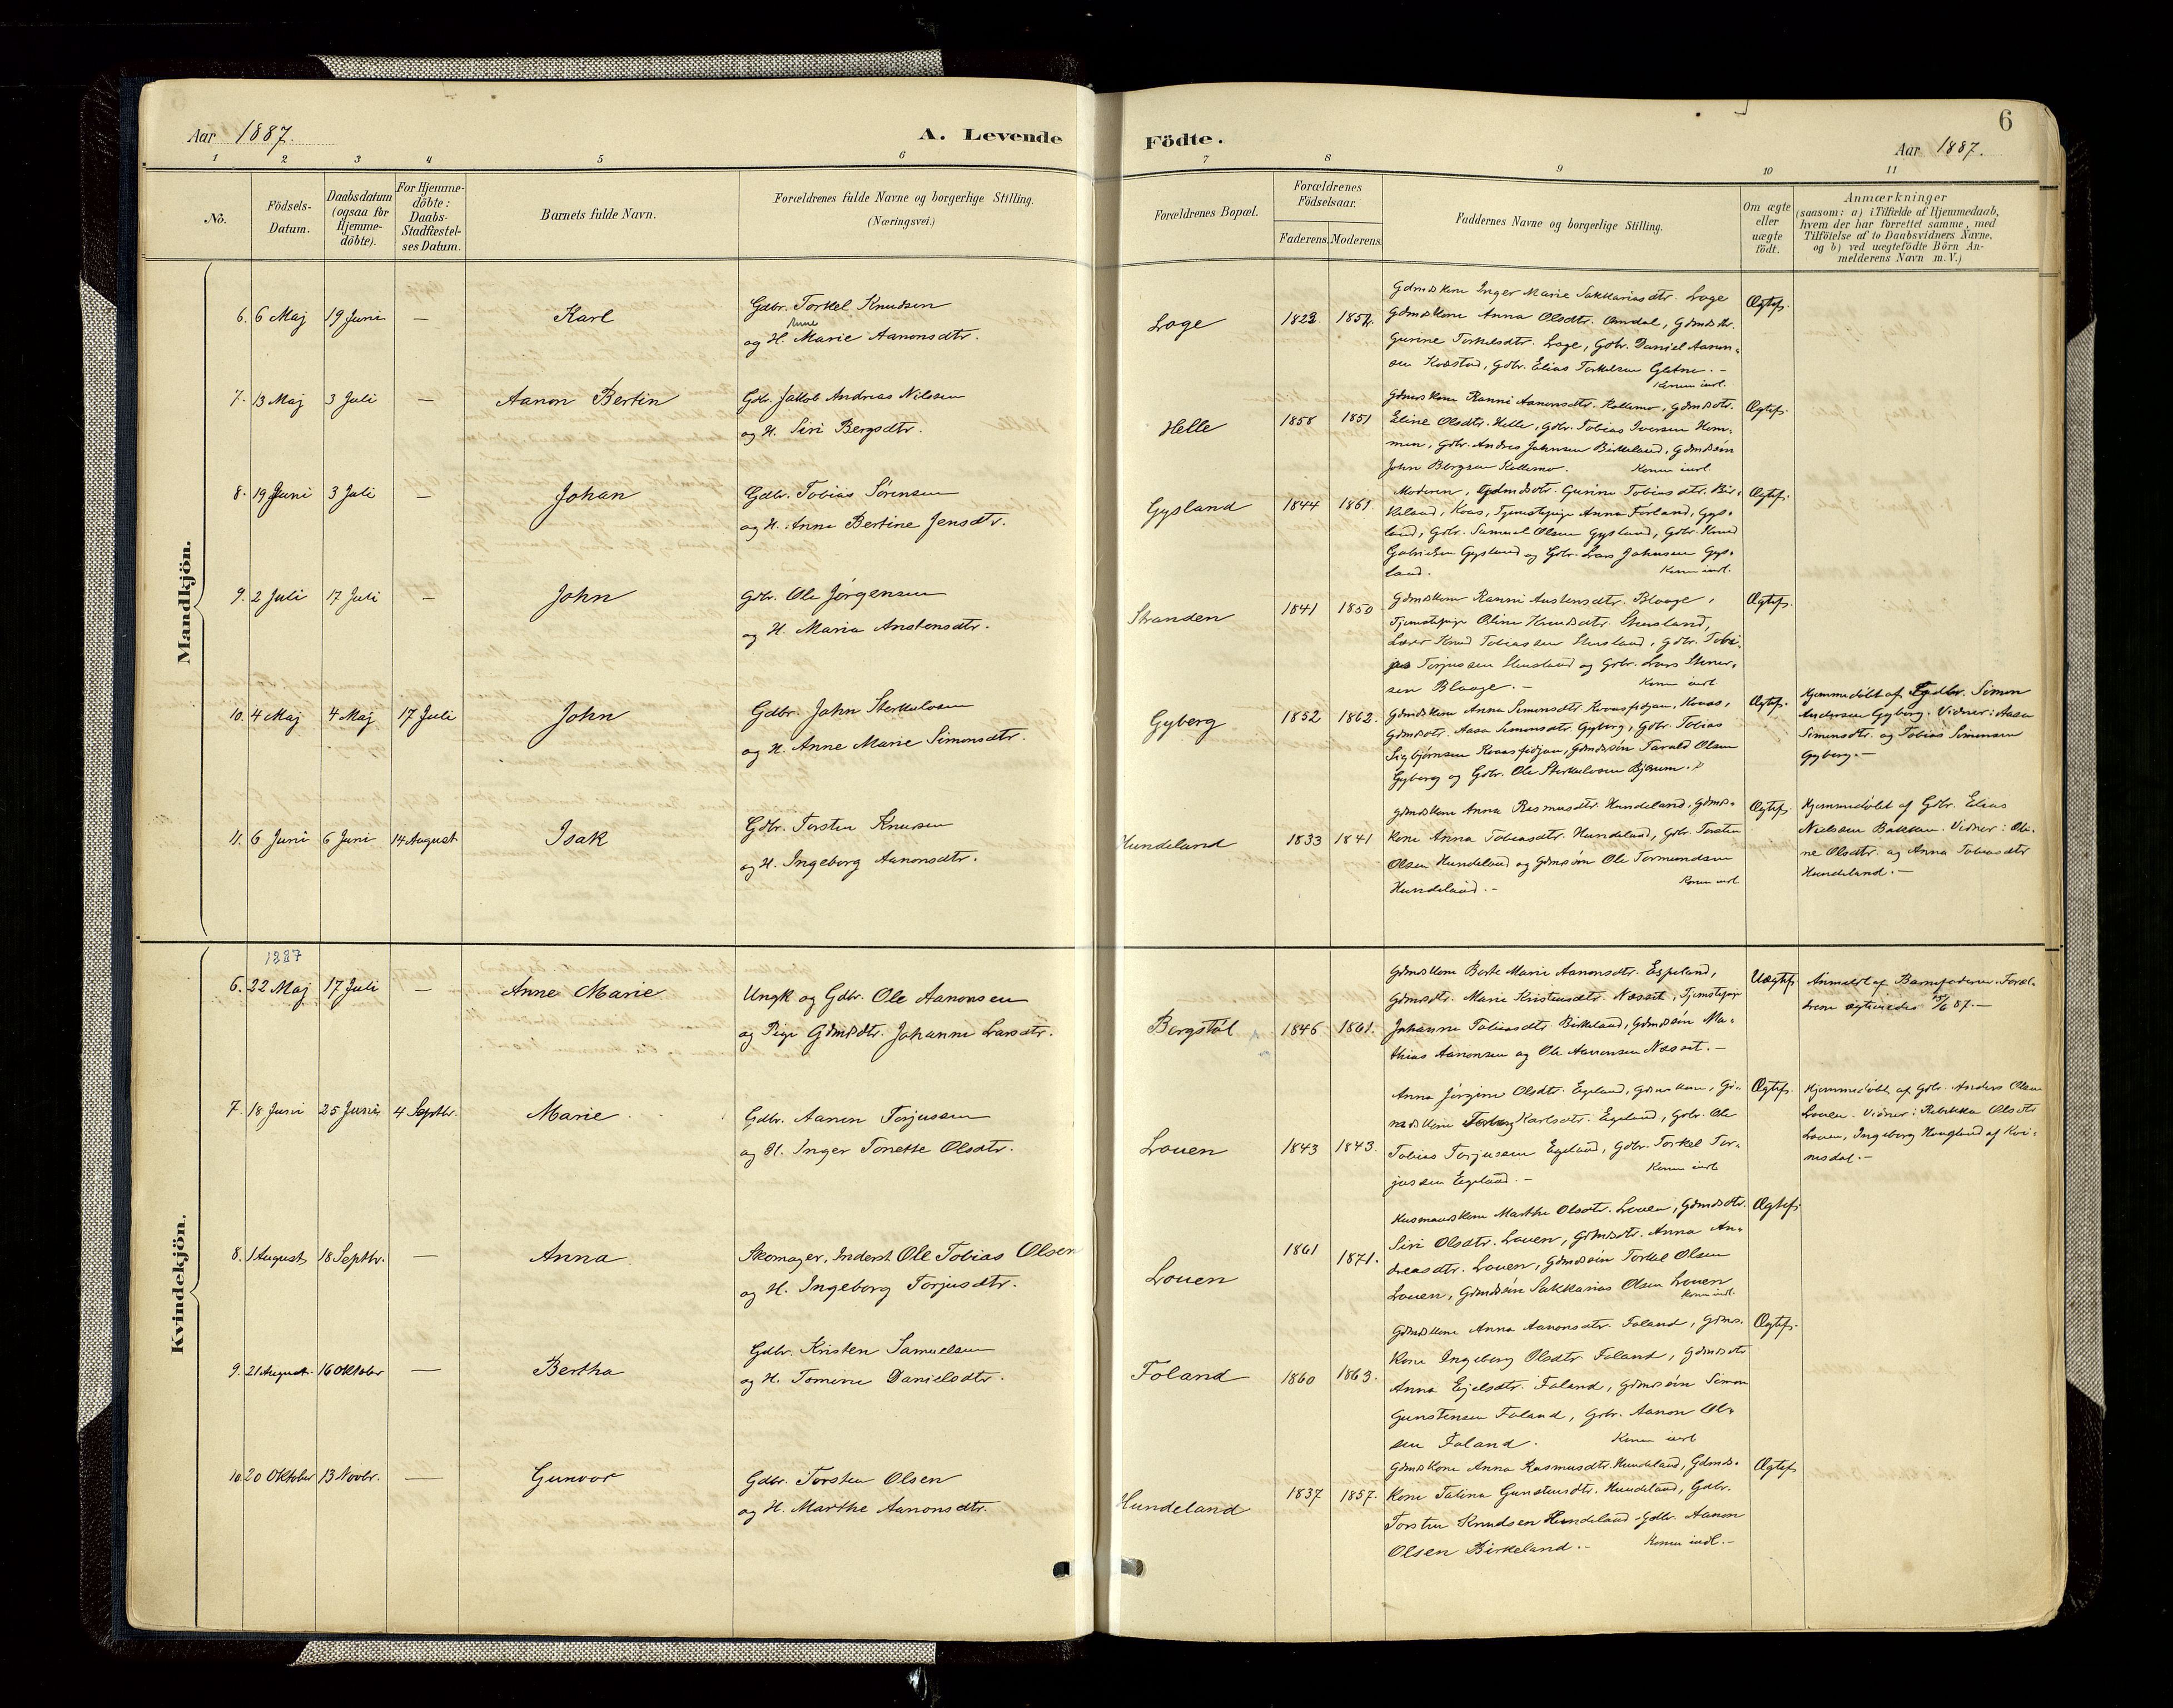 6
Aar 1887.
A. Levende Födte.
Aar 1887.
1 2 3 4 5 6 7 8 9 10 11
No.
Födsels-
Datum.
Daabsdatum
(ogsaa for
Hjemme-
döbte).
For Hjemme-
döbte:
Daabs-
Stadfæstel-
ses Datum.
Barnets fulde Navn.
Forældrenes fulde Navne og borgerlige Stilling.
(Næringsvei.)
Forældrenes Bopæl.
Forældrenes
Födselsaar.
Faderens. Moderens.
Faddernes Navne og borgerlige Stilling.
Om ægte
eller
uægte
födt.
Anmærkninger
(saasom: a) i Tilfælde af Hjemmedaab,
hvem der har forrettet samme, med
Tilföielse af to Daabsvidners Navne,
og b) ved uægtefödte Börn An-
melderens Navn m. V.)
Mandkjön.
6. 6 Maj 19 Juni — Karl
Gdbr. Torkel Knudsen
Anne
og H. Marie Aanonsdtr.
Loge 1822. 1852.
Gdmdskone Inger Marie Sakkariasdtr. Loge
Gdmdskone Anna Olsdtr. Omdal, Gdmdsdtr.
Gurine Torkelsdtr. Loge, Gdbr. Daniel Aanon-
sen Kvæstad, Gdbr. Elias Torkelsen Gletne. —
Konen indl.
Ægtef.
7. 13 Maj 3 Juli — Aanon Bertin
Gdb. Jakob Andreas Nilssen
og H. Siri Bergsdtr.
Helle 1858 1851
Gdmdskone Ranni Aanonsdtr. Kollemo, Gdmdsdtr.
Eline Olsdtr. Helle, Gdbr. Tobias Iversen Hom-
men, Gdbr. Andreas Johnsen Birkeland, Gdmdssön
John Bergsen Kollemo. Konen indl.
Ægtef.
8. 19 Juni 3 Juli — Johan
Gdbr. Tobias Sörensen
og H. Anna Bertine Jensdtr.
Gysland 1844 1861.
Moderen, Gdmdsdtr. Gurine Tobiasdtr. Bir-
keland, Kvas, Tjenestepige Anna Forland, Gys-
land, Gdbr. Samuel Olsen Gysland, Gdbr. Knud
Gabrielsen Gysland og Gdbr. Lars Johnsen Gys-
land. Konen indl.
Ægtef.
9. 2 Juli 17 Juli — John
Gdbr. Ole Jörgensen
og H. Maria Anstensdtr.
Stranden 1841 1850
Gdmdskone Ranni Anstensdtr. Blaage,
Tjenestepige Oline Knudsdtr. Stensland,
Lærer Knud Tobiassen Stensland, Gdbr. Tobi-
jas Torjussen Stensland og Gdbr. Lars Stener-
sen Blaage. — Konen indl.
Ægtef.
10. 4 Maj 4 Maj 17 Juli John
Gdbr. John Sterkulvsen
og H. Anne Marie Simonsdtr.
Gyberg 1852 1862.
Gdmdskone Anna Simonsdtr. Kvaasfidjan, Kvaas,
Gdmdsdtr. Aasa Simonsdtr. Gyberg, Gdbr. Tobias
Sigbjörnsen Kvaasfidjan, Gdmdssön Tarald Olsen
Gyberg og Gdbr. Ole Sterkulvsen Bjærum.
Ægtef.
Hjemmedöbt af Gdbr. Simon
Andersen Gyberg. Vidner: Aasa
Simonsdtr. og Tobias Simonsen
Gyberg. —
11. 6 Juni 6 Juni 14 August Isak
Gdbr. Torsten Knudsen
og H. Ingeborg Aanonsdtr.
Hundeland 1833 1841
Gdmdskone Anna Rasmusdtr. Hundeland, Gdmds-
kone Anna Tobiasdtr. Hundeland, Gdbr. Torsten
Olsen Hundeland og Gdmdssön Ole Tormundsen
Hundeland. — Konen indl
Ægtef
Hjemmedöbt af Gdbr. Elias
Nielssen Bakken. Vidner: Oli-
ne Olsdtr. og Anna Tobiasdtr
Hundeland. —
Kvindekjön.
1887
6. 22 Maj 17 Juli — Anne Marie
Ungk og Gdbr. Ole Aanonsen
og Pige Gdmdsdtr. Johanne Larsdtr.
Bergstöl 1846 1861.
Gdmdskone Berte Marie Aanonsdtr. Espeland,
Gdmdsdtr. Marie Kristensdtr. Næset, Tjenestepige
Johanne Tobiasdtr. Birkeland, Gdmdssön Ma-
thias Aanonsen og Ole Aanonsen Næset. —
Uægtef.
Anmeldt af Barnefaderen. Foræl-
drene ægteviedes 15/6 87. —
7. 18 Juni 25 Juni 4 Septbr. Marie
Gdbr. Aanon Torjussen
og H. Inger Tonette Olsdtr.
Louen 1843 1843.
Anna Jörgine Olsdtr. Egeland, Gdmdskone, Gd-
mdskone Karlsdtr. Egeland, Gdbr. Ole
Tobias Torjussen Egeland, Gdbr. Torkel Tor-
jussen Egeland. — Konen indl
Ægtef.
Hjemmedöbt af Gdbr. Anders Olsen
Louen. Vidner: Rebekka Olsdtr
Louen, Ingeborg Haugland af Kvi-
nesdal. —
8. 1 August 18 Septbr. — Anna
Skomager, Inderst Ole Tobias Olsen
og H. Ingeborg Torjusdtr.
Louen 1861 1871.
Husmandskone Marthe Olsdtr. Louen, Gdmdsdtr.
Siri Olsdtr. Louen, Gdmdsdtr. Anna An-
dreasdtr. Louen, Gdmdssön Torkel Olsen
Louen, Gdmdssön Sakkarias Olsen Louen
Konen indl.
Ægtef.
9. 21 August 16 Oktober — Bertha
Gdbr. Kristen Samuelsen
og H. Tomine Danielsdtr.
Foland 1860 1863.
Gdmdskone Anna Aanonsdtr. Foland, Gdmds-
kone Ingeborg Olsdtr. Foland, Gdmdsdtr
Anna Ejelsdtr. Foland, Gdmdssön Simon
Gunstensen Foland, Gdbr. Aanon Ol-
sen Foland. Konen indl
Ægtef.
10. 20 Oktober 13 Novbr. — Gunvor
Gdbr. Torsten Olsen
og H. Marthe Aanonsdtr.
Hundeland 1837 1857.
Gdmdskone Anna Rasmusdtr. Hundeland, Gdmds-
kone Talina Gunstensdtr. Hundeland, Gdbr.
Torsten Knudsen Hundeland, Gdbr. Aanon
Olsen Birkeland. — Konen indl. —
Ægtef